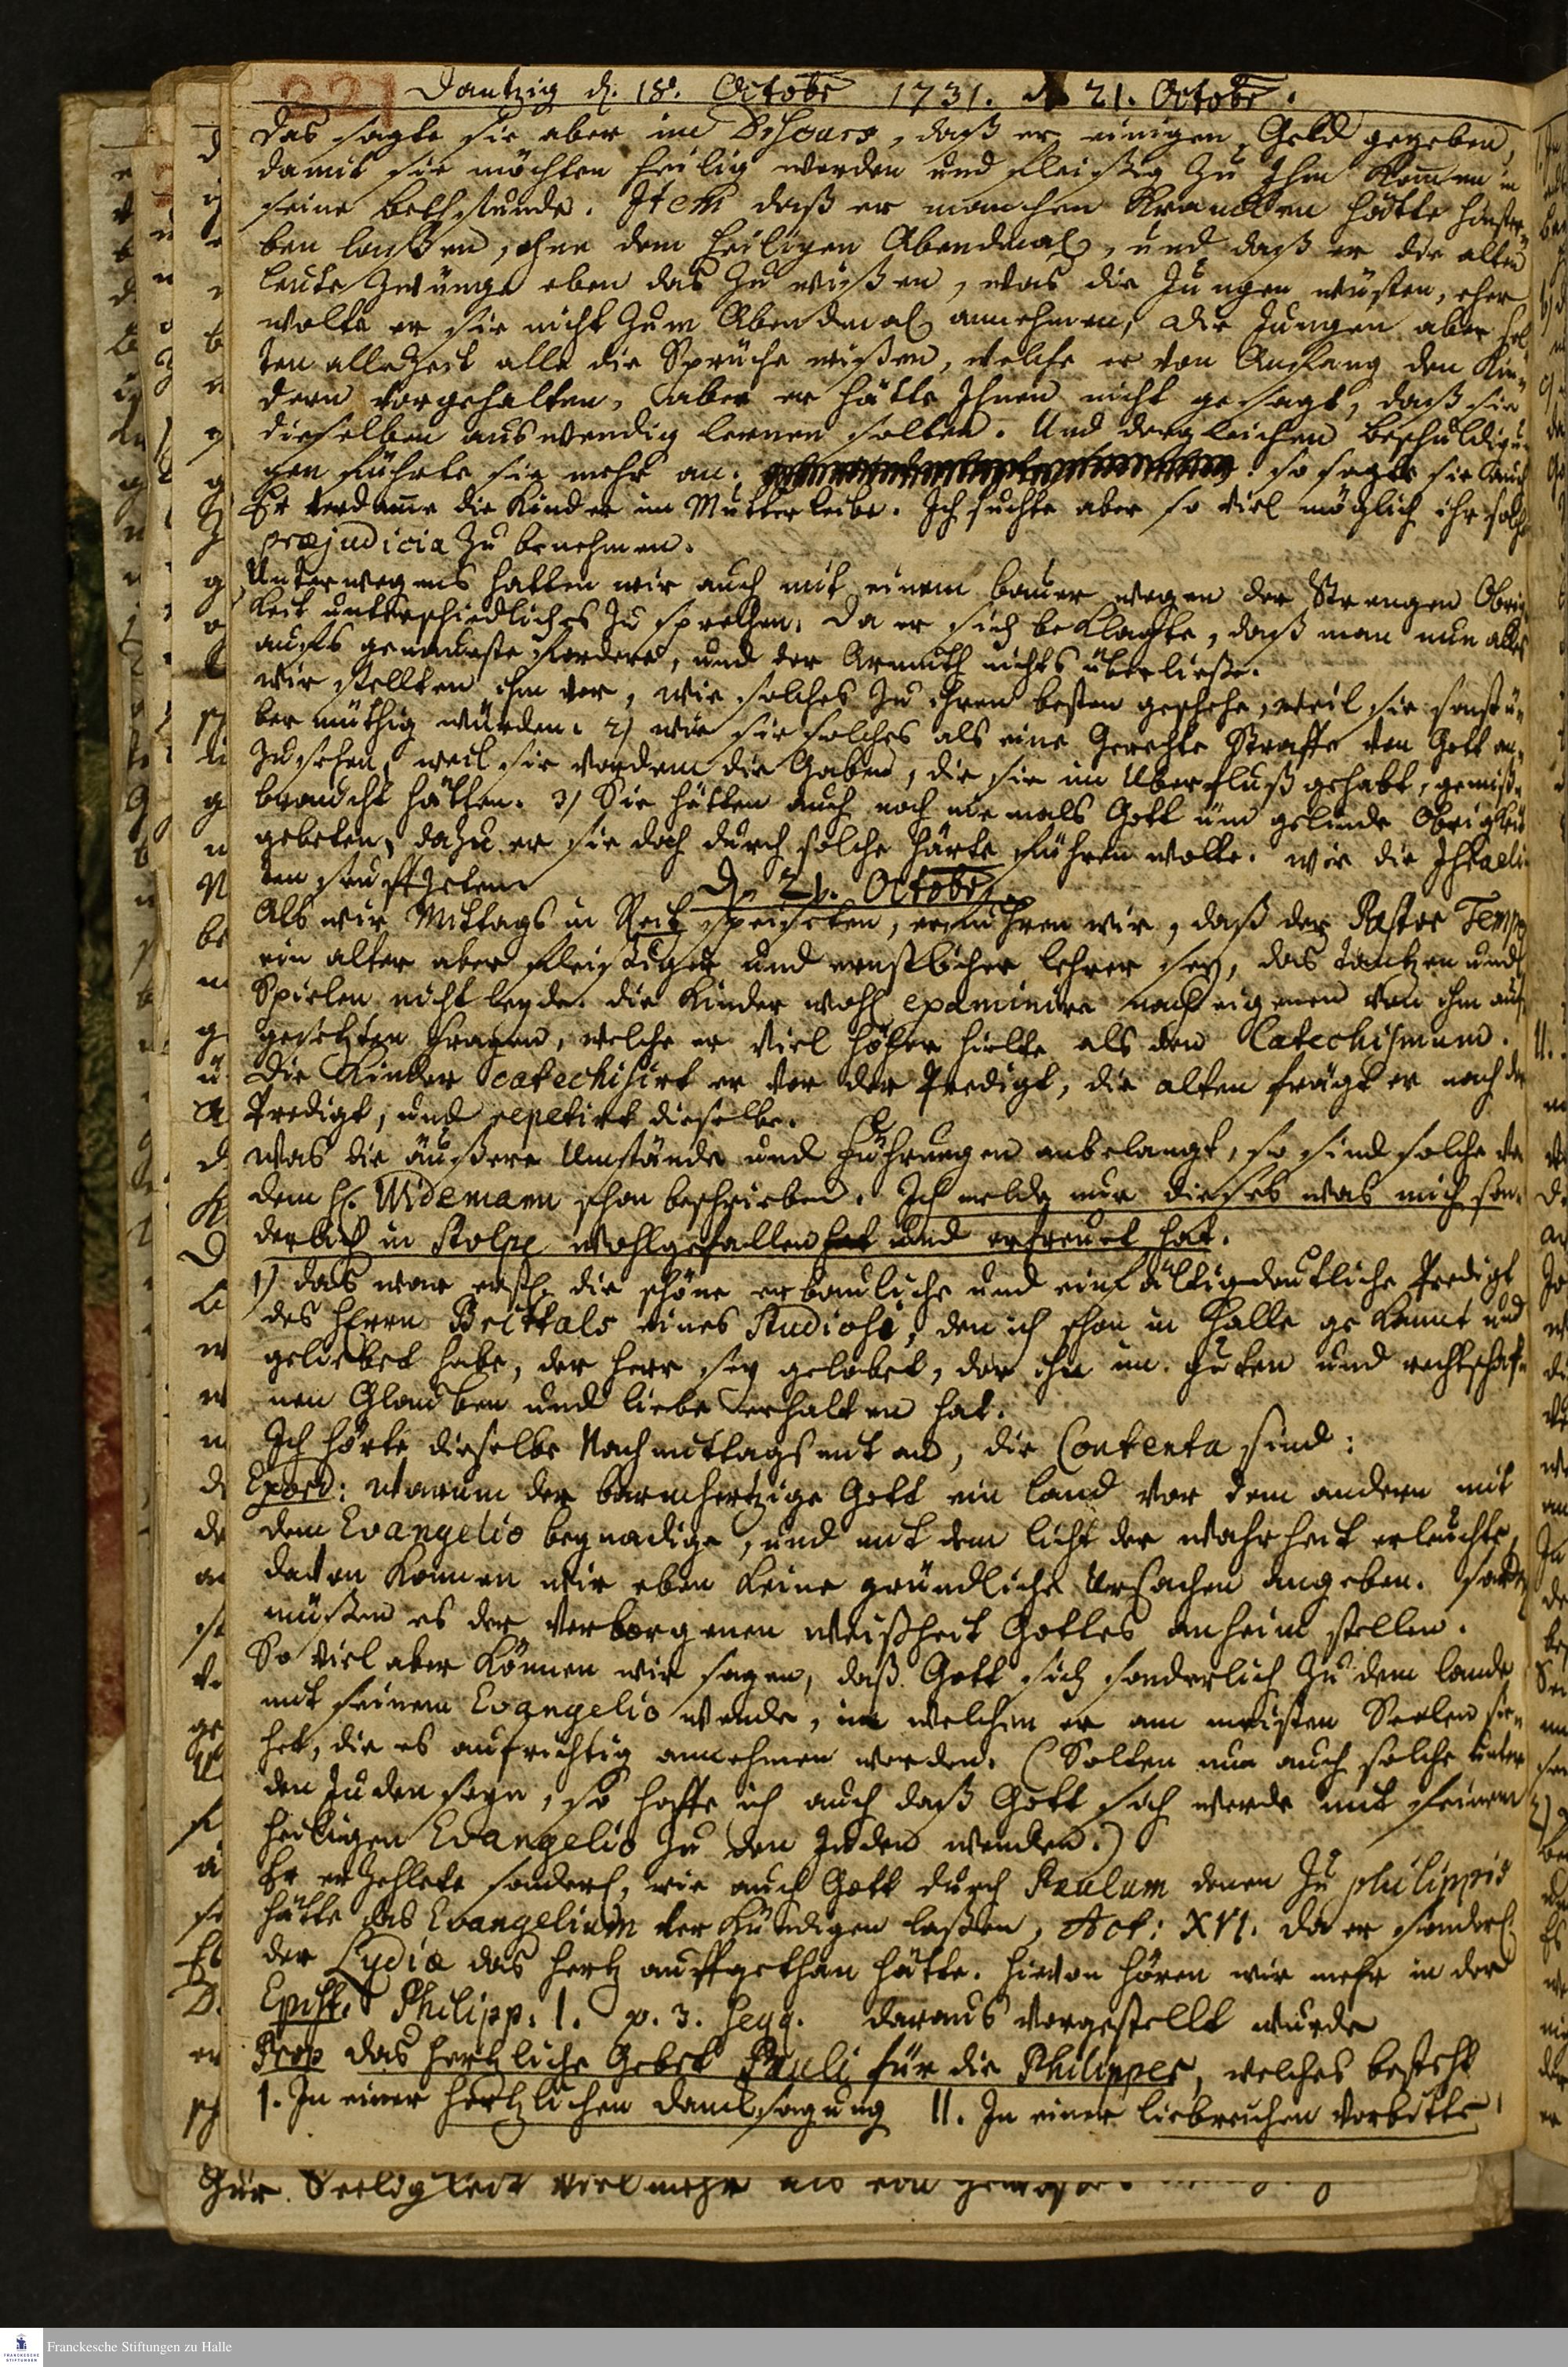 221
Dantzig d. 18. Octobr 1731. d 21. Octobr.
Das sagte sie aber im Discours, daß er einigen Geld gegeben,
damit sie möchten heilig werden und fleißig zu Ihm kommen in
seine bethstunde. Item daß er manchen Krancken hätte hinster-
ben laßen, ohne dem heiligen Abendmal, und daß er die alten
leute zwünge eben das zu wißen, was die Jungen wüsten, eher
wolte er sie nicht zum Abendmal annehmen, die Jungen aber sol
ten alle Zeit alle die Sprüche wißen, welche er von Anfang den Kin-
dern vorgehalten, aber er hätte Ihnen nicht gesagt, daß sie
dieselben auswendig lernen solten. Und dergleichen beschuldigun-
gen führte sie mehr an. so sagte sie auch
Er verdamme die Kinder im Mutterleibe. Ich suchte aber so viel möglich ihr solche
præjudicia zu benehmen.
Unterwegens hatten wir auch mit einem bauer wegen der Strengen Obrig
keit unterschiedliches zu sprechen, da er sich beklagte, daß man nun alles
aufs genaueste fordere, und der Armuth nichts überließe.
wir stellten ihm vor, wie solches zu ihren besten geschehe, weil sie sonst ü-
bermüthig würden. 2) wie sie solches als eine Gerechte Straffe von Gott an-
zusehen, weil sie vordem die Gaben, die sie im Uberfluß gehabt, gemiß-
braucht hätten. 3) Sie hätten auch noch niemals Gott üm gelinde Obrigkeit
gebeten, dazu er sie doch durch solche Härte führen wolte. wie die Israeli-
ten seufftzeten.
D. 21. Octobr.
Als wir Mittags in speiseten, erfuhren wir, daß der Pastor
ein alter aber fleißiger und ernstlicher lehrer sey, das tantzen und
Spielen nicht leyde. die Kinder wohl examinire nach eigenen von ihm auf
gesetzten fragen, welche er viel höher hielte als den Catechismum.
Die Kinder catechisirt er vor der Predigt, die alten frägt er nach der
Predigt, und repetirt dieselbe.
was die äußere Umstände und führungen anbelangt, so sind solche von
dem H. Widemann schon beschrieben. Ich melde nur dieses was mich son-
derlich in Stolpe wohlgefallen hat und erfreuet hat.
1) das war erstl. die schöne erbauliche und einfältigdeutliche Predigt
des Herrn eines Studiosi, den ich schon in Halle gekannt und
geliebet habe, der Herr sey gelobet, der ihn im guten und rechtschaf-
nen Glauben und liebe erhalten hat.
Ich hörte dieselbe Nachmittags mit an, die Contenta sind:
Exord: Warum der barmhertzige Gott ein land vor dem andern mit
dem Evangelio begnadige, und mit dem licht der wahrheit erleuchte,
davon können wir eben keine gründliche Ursachen angeben. sondern
müßen es der verborgenen weißheit Gottes anheim stellen.
So viel aber können wir sagen, daß Gott sich sonderlich zu dem lande
mit seinem Evangelio wende, in welchem er am meisten Seelen sie-
het, die es aufrichtig annehmen werden. (Solten nun auch solche unter
den Juden seyn, so hoffe ich auch daß Gott sich werde mit seinem
heiligen Evangelio zu den Juden wenden.)
Er erzehlete sonderl. wie auch Gott durch Paulum denen zu philippis
hätte das Evangelium verkündigen laßen, Act: XVI. da er sonderl.
der Lydiæ das hertz aufgethan hätte. hievon hören wir mehr in der
Epist. Philipp: 1. v. 3. seqq. daraus vorgestellt wurde
Prop das hertzliche Gebet Pauli für die Philipper, welches besteht
I. In einer hertzlichen dancksagung II. In einer liebreichen Vorbitte
zur Seeligkeit vielmehr als
Franckesche Stiftungen zu Halle